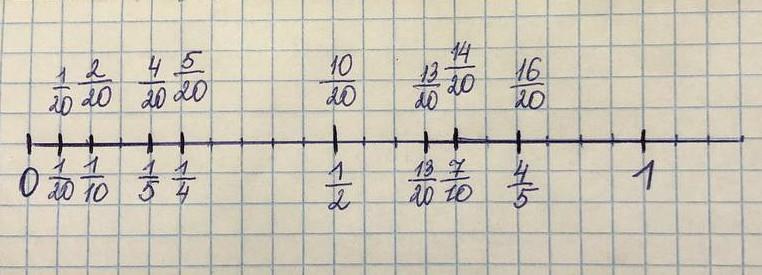 1/20 2/20 4/20 5/20 10/20 13/20 14/20 16/20
0 1/20 1/10 1/5 1/4 1/2 13/20 7/10 4/5 1